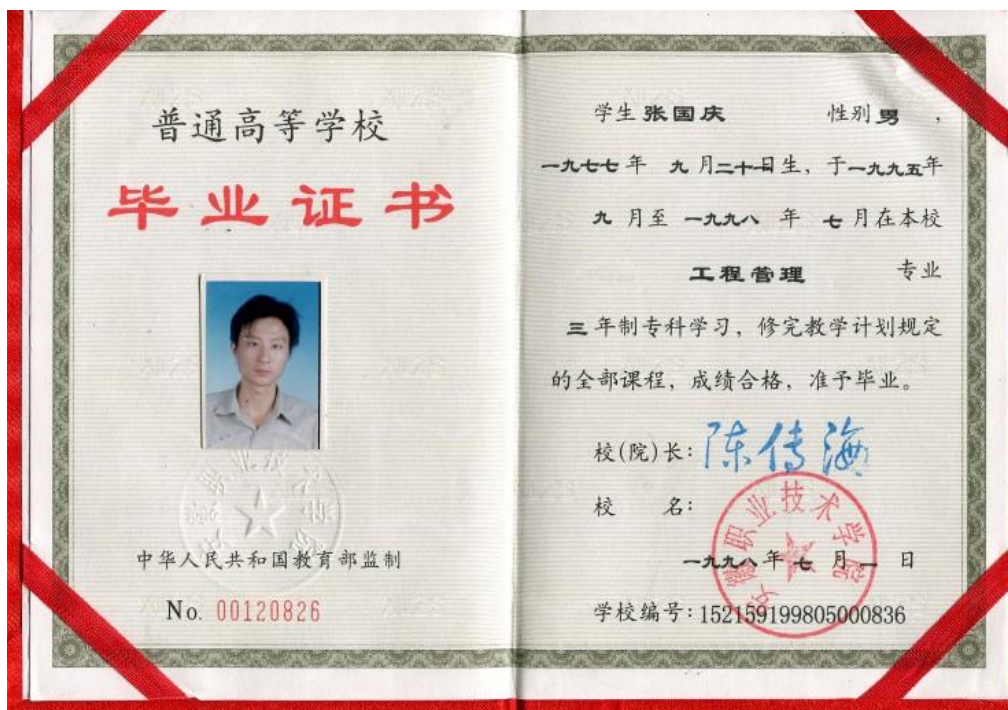 普通高等学校
毕业证书
安徽职业技术学院
中华人民共和国教育部监制
No. 00120826
学生 张国庆 性别 男 ,
一九七七 年 九 月二十日生, 于一九九五年
九 月至 一九九八 年 七 月在本校
工程管理 专业
三 年制专科学习, 修完教学计划规定
的全部课程, 成绩合格, 准予毕业。
校(院)长: 陈传海
校 名:
安徽职业技术学院
一九九八 年 七 月 一 日
学校编号: 152159199805000836